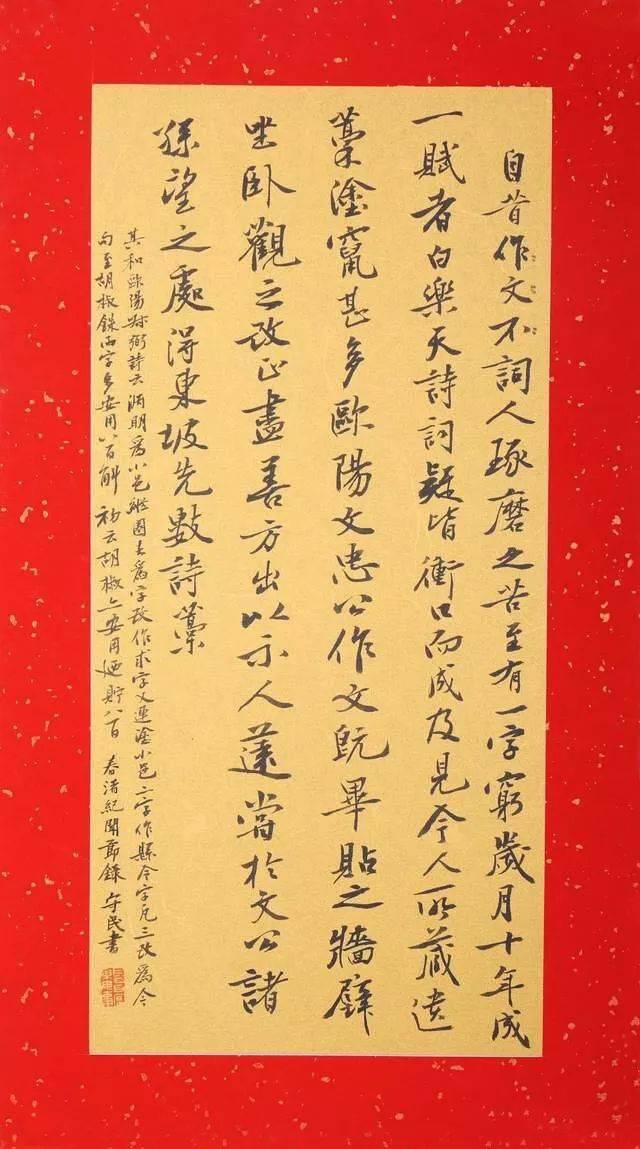 自昔作文不詞人琢磨之苦至有一字窮歲月十年成
一賦者白樂天詩詞疑皆衝口而成及見今人所藏遺
藁塗竄甚多歐陽文忠公作文既畢貼之牆壁
坐卧觀之改正盡善方出以示人薳嘗於文公諸
孫望之處得東坡先數詩藁
其和歐陽叔弼詩云渊明為小邑繼圈去為字改作求字又連塗小邑二字作縣令字凡三改為今
句至胡椒銖兩字多安用八百斛初云胡椒亦安用廼貯八百 春渚紀聞節錄 守民書